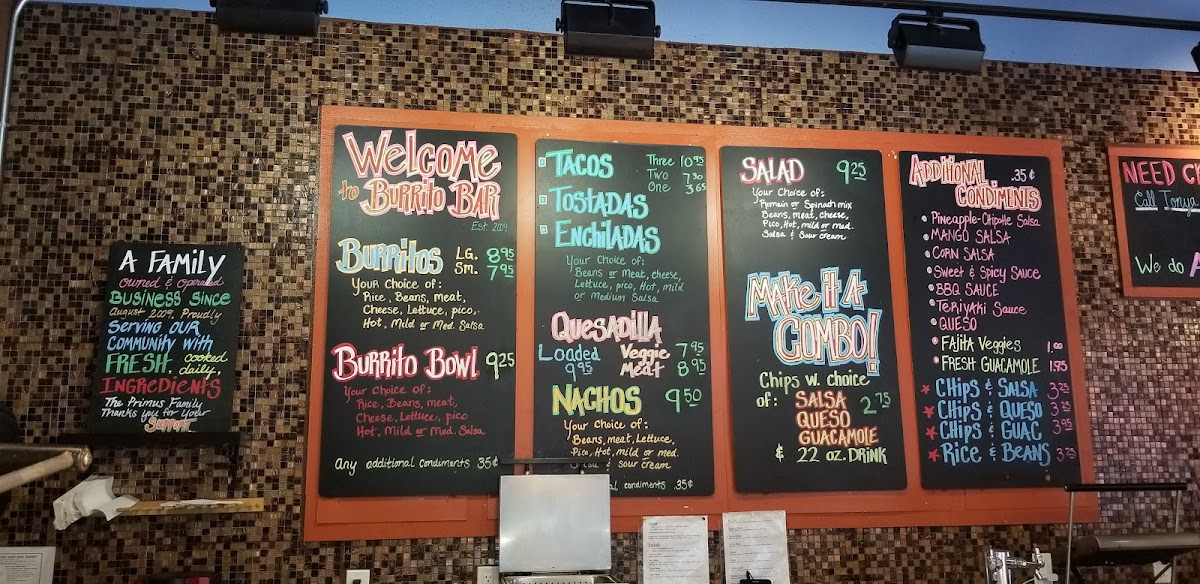 A FAMILY
owned & operated
BUSINESS SINCE
August 2009, Proudly
SERVING OUR
COMMUNITY WITH
FRESH, cooked
daily,
INGREDIENTS
The Primus Family
Thanks You for Your
Support
WELCOME
to BURRITO BAR
Est. 2009
BURRITOS LG. 8.95
SM. 7.95
YOUR CHOICE OF:
Rice, Beans, meat,
Cheese, Lettuce, pico,
Hot, Mild or Med. Salsa
BURRITO BOWL 9.25
Your Choice of:
Rice, Beans, meat,
Cheese, Lettuce, pico
Hot, Mild or Med. Salsa
Any additional condiments 35¢
TACOS Three 10.95
Two 7.30
One 3.65
TOSTADAS
ENCHILADAS
Your Choice of:
Beans or Meat, cheese,
Lettuce, pico, Hot, mild
or Medium Salsa
QUESADILLA
Loaded 9.95
Veggie 7.95
Meat 8.95
NACHOS 9.50
Your Choice of:
Beans, meat, Lettuce,
Pico, Hot, mild or med.
Salsa & Sour cream
condiments .35¢
SALAD 9.25
Your Choice of:
Romain or Spinach mix
Beans, meat, cheese,
Pico, Hot, mild or med.
Salsa & Sour cream
MAKE IT A
COMBO!
Chips w. choice
of: SALSA 2.75
QUESO
GUACAMOLE
& 22 oz. DRINK
ADDITIONAL .35¢
CONDIMENTS
Pineapple-Chipotle Salsa
MANGO SALSA
CORN SALSA
Sweet & Spicy Sauce
BBQ SAUCE
TERIYAKI Sauce
QUESO
FAJITA Veggies 1.00
FRESH GUACAMOLE 1.95
CHIPS & SALSA 3.25
CHIPS & QUESO
CHIPS & GUAC 3.95
RICE & BEANS
NEED
Call Tonya
We do